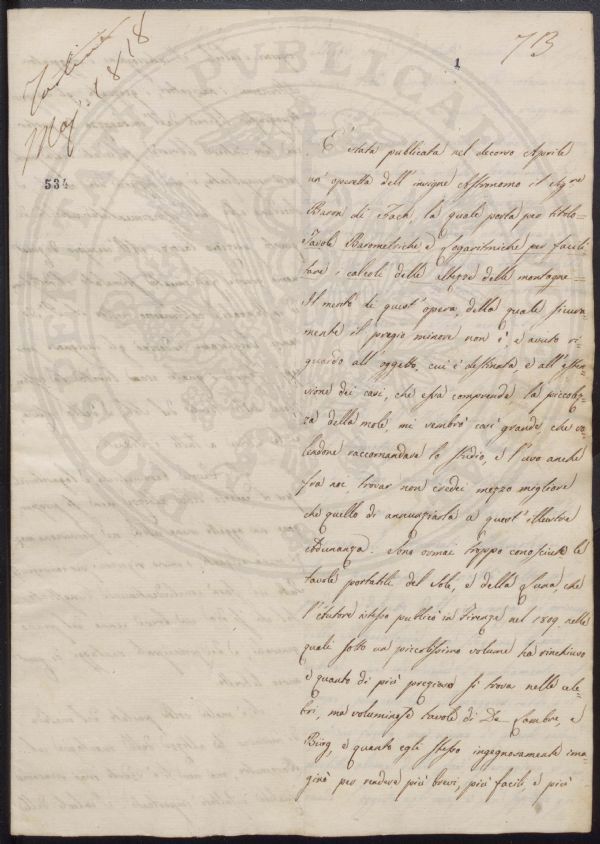 Maj. 1818
534
1
7B
E' stata publicata nel decorso Aprile
un' operetta dell' insigne Astronomo il Sigre
Baron di Zach, la quale porta per titolo =
Tavole Barometriche e Logaritmiche per facili
tare i calcoli delle altezze delle montagne =
Il merito di quest' opera, della quale sicura=
mente il pregio minore non è, e avuto ri=
guardo all' oggetto, cui è destinata e all' esten
sione dei casi, che essa comprende la piccolez=
za della mole, mi sembrò così grande, che vo=
lendone raccomandare lo studio, e l'uso anche
fra noi, trovar non credei mezzo migliore
che quello di annunziarla a quest' illustre
Adunanza. Sono ormai troppo conosciute le
tavole portatili del Sole, e della Luna, che
l'Autore istesso publicò in Firenze nel 1809 nelle
quali sotto un piccolissimo volume ha rinchiuso
e quanto di più prezioso si trova nelle cele=
bri, ma voluminose tavole di De-Lambre, e
Bürg, e quanto egli stesso ingegnosamente ima=
ginò per rendere più brevi, più facili, e più